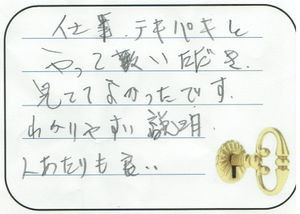 仕事.テキパキと
やって戴いただき.
見ててよかったです.
わかりやすい説明.
人あたりも良..